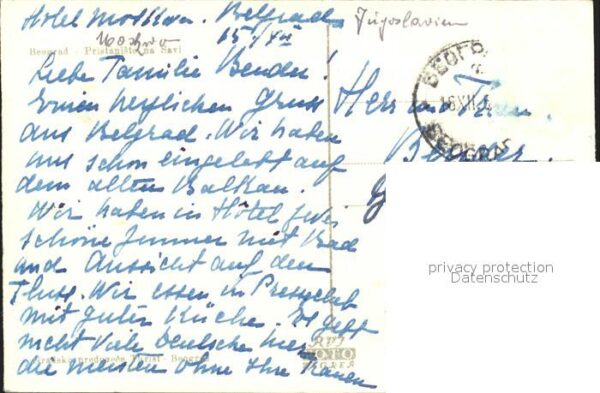 Hotel Moskwa. Belgrad
Jugoslavien
Moskwa
15./XII
Beograd - Pristanište na Savi
Liebe Familie Bender!
Einen herzlichen Gruss
aus Belgrad. Wir haben
uns schon eingelebt auf
dem alten Balkan.
Wir haben in Hotel zwei
schöne Zimmer mit Bad
und Aussicht auf den
Fluss. Wir essen in Presseclub
mit guten Küche. Es gibt
nicht viele Deutsche hier
die meisten ohne Ihre Frauen
Gradsko preduzeće Turist - Beograd
BEOGRAD
16 XII
BEOGRAD
Herr und Frau
Bender
privacy protection
Datenschutz
FOTO
ZAGREB